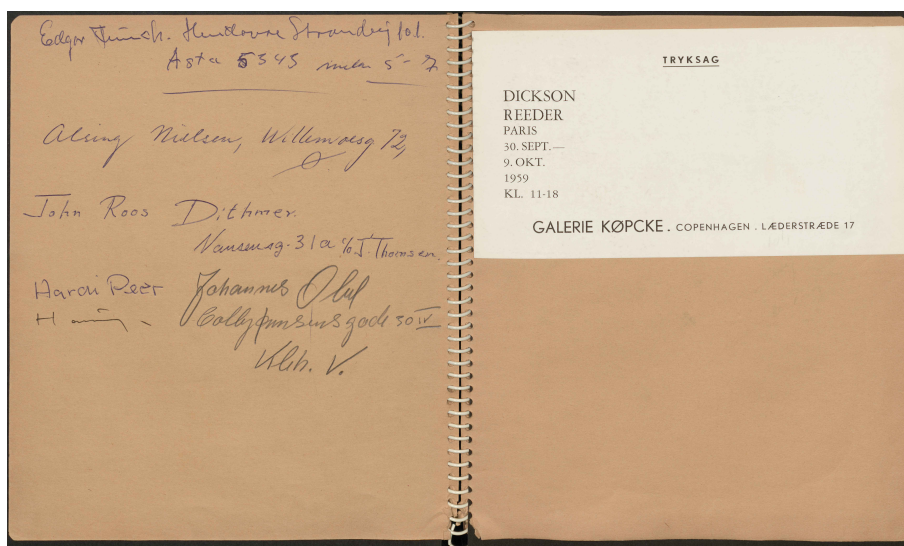 Edgar Funch. Hvidovre Strandvej 101.
Asta 5345 mellem 5-7
Alsing Nielsen, Willemoesg 72,
John Roos Dithmer.
Nansensg. 31a c/o J. Thomsen.
Johannes
50 IV
Kbh. V.
TRYKSAG
DICKSON
REEDER
PARIS
30. SEPT.—
9. OKT.
1959
KL. 11-18
GALERIE KØPCKE. COPENHAGEN . LÆDERSTRÆDE 17